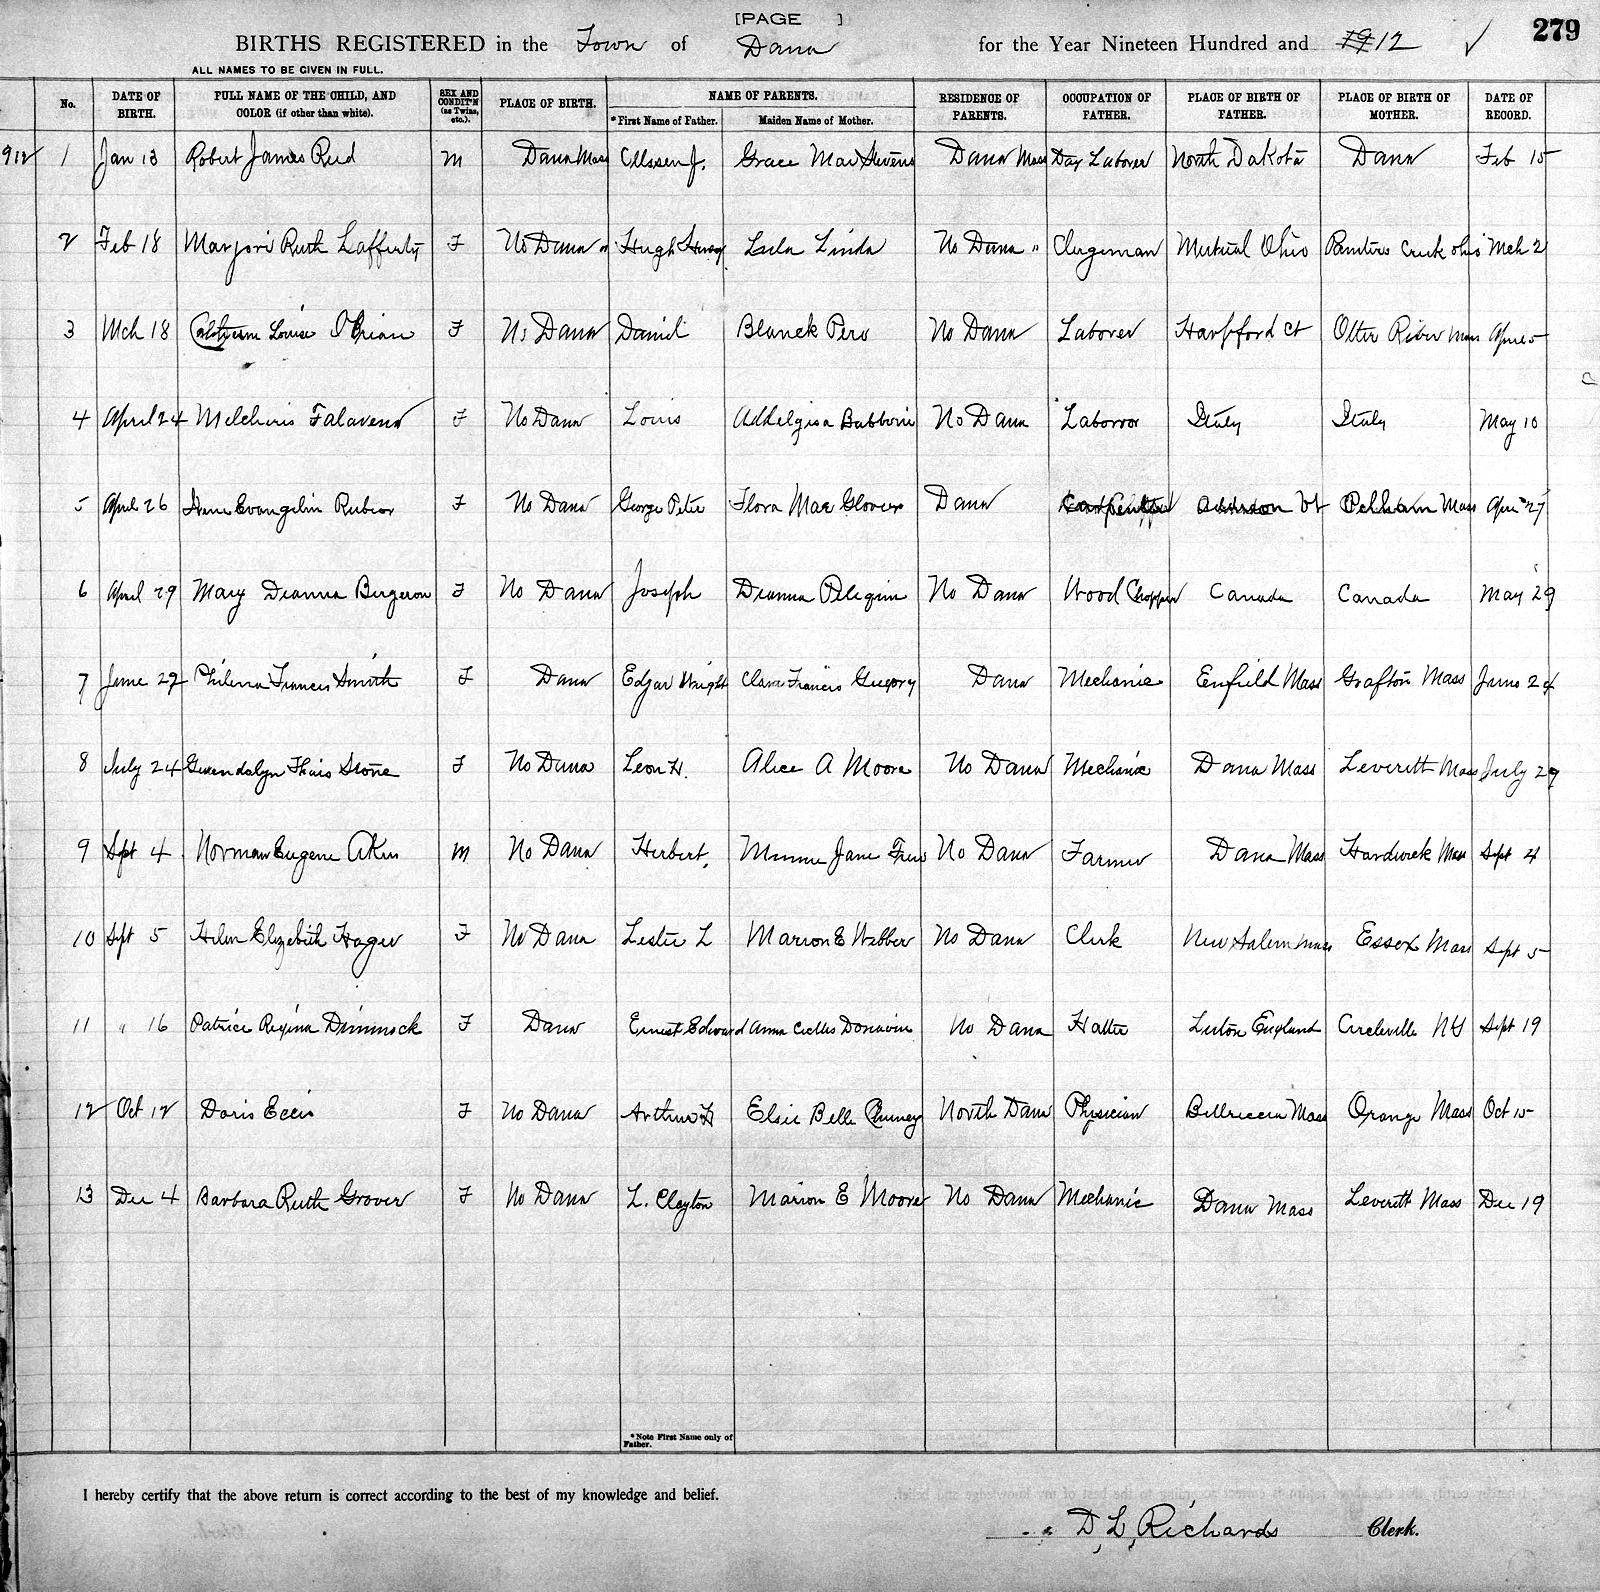 [PAGE ]
279
BIRTHS REGISTERED in the Town of Dana for the Year Nineteen Hundred and 1912 ✓
ALL NAMES TO BE GIVEN IN FULL.
No. DATE OF BIRTH. FULL NAME OF THE CHILD, AND COLOR (if other than white). SEX AND CONDIT'N (as Twins, etc.). PLACE OF BIRTH. NAME OF PARENTS. *First Name of Father. Maiden Name of Mother. RESIDENCE OF PARENTS. OCCUPATION OF FATHER. PLACE OF BIRTH OF FATHER. PLACE OF BIRTH OF MOTHER. DATE OF RECORD.
912 1 Jan 13 Robert James Reid M Dana Mass J. Grace Mae Stevens Dana Mass Day Laborer North Dakota Dana Feb 15
2 Feb 18 Marjori Ruth Lafferty F No Dana " Hugh Lula Linda No Dana " Clergeman Mutual Ohio Creek ohio Mch 2
3 Mch 18 Louise O'Brian F No Dana Daniel Blanch Pero No Dana Laborer Hartford Ct Otter River Mass April 5
4 April 24 F No Dana Louis No Dana Laboror Italy Italy May 10
5 April 26 Evangelin F No Dana George Peter Flora Mae Glover Dana Carpenter Addison Vt Pelham Mass April 27
6 April 29 Mary Dianna Bergeron F No Dana Joseph Dianna Peligrin No Dana Wood Chopper Canada Canada May 29
7 June 22 Philena Francis Smith F Dana Edgar Wright Clara Francis Gregory Dana Mechanic Enfield Mass Grafton Mass June 24
8 July 24 Gwendalyn Thais Stone F No Dana Leon H. Alice A Moore No Dana Mechanic Dana Mass Leverett Mass July 29
9 Sept 4 Norman Eugene Aken M No Dana Herbert, Minnie Jane No Dana Farmer Dana Mass Hardwick Mass Sept 4
10 Sept 5 Helen Elizebeth Hager F No Dana Lester L Marion E Webber No Dana Clerk New Salem Mass Essex Mass Sept 5
11 " 16 Patrice Regina Dimmock F Dana Ernest Edward Anna Donavin No Dana Hatter Luton England Circleville NY Sept 19
12 Oct 12 Doris F No Dana Arthur H Elsie Belle North Dana Physician Billriccia Mass Orange Mass Oct 15
13 Dec 4 Barbara Ruth Grover F No Dana L. Clayton Marion E Moore No Dana Mechanic Dana Mass Leverett Mass Dec 19
*Note First Name only of Father.
I hereby certify that the above return is correct according to the best of my knowledge and belief.
D, L, Richards Clerk.